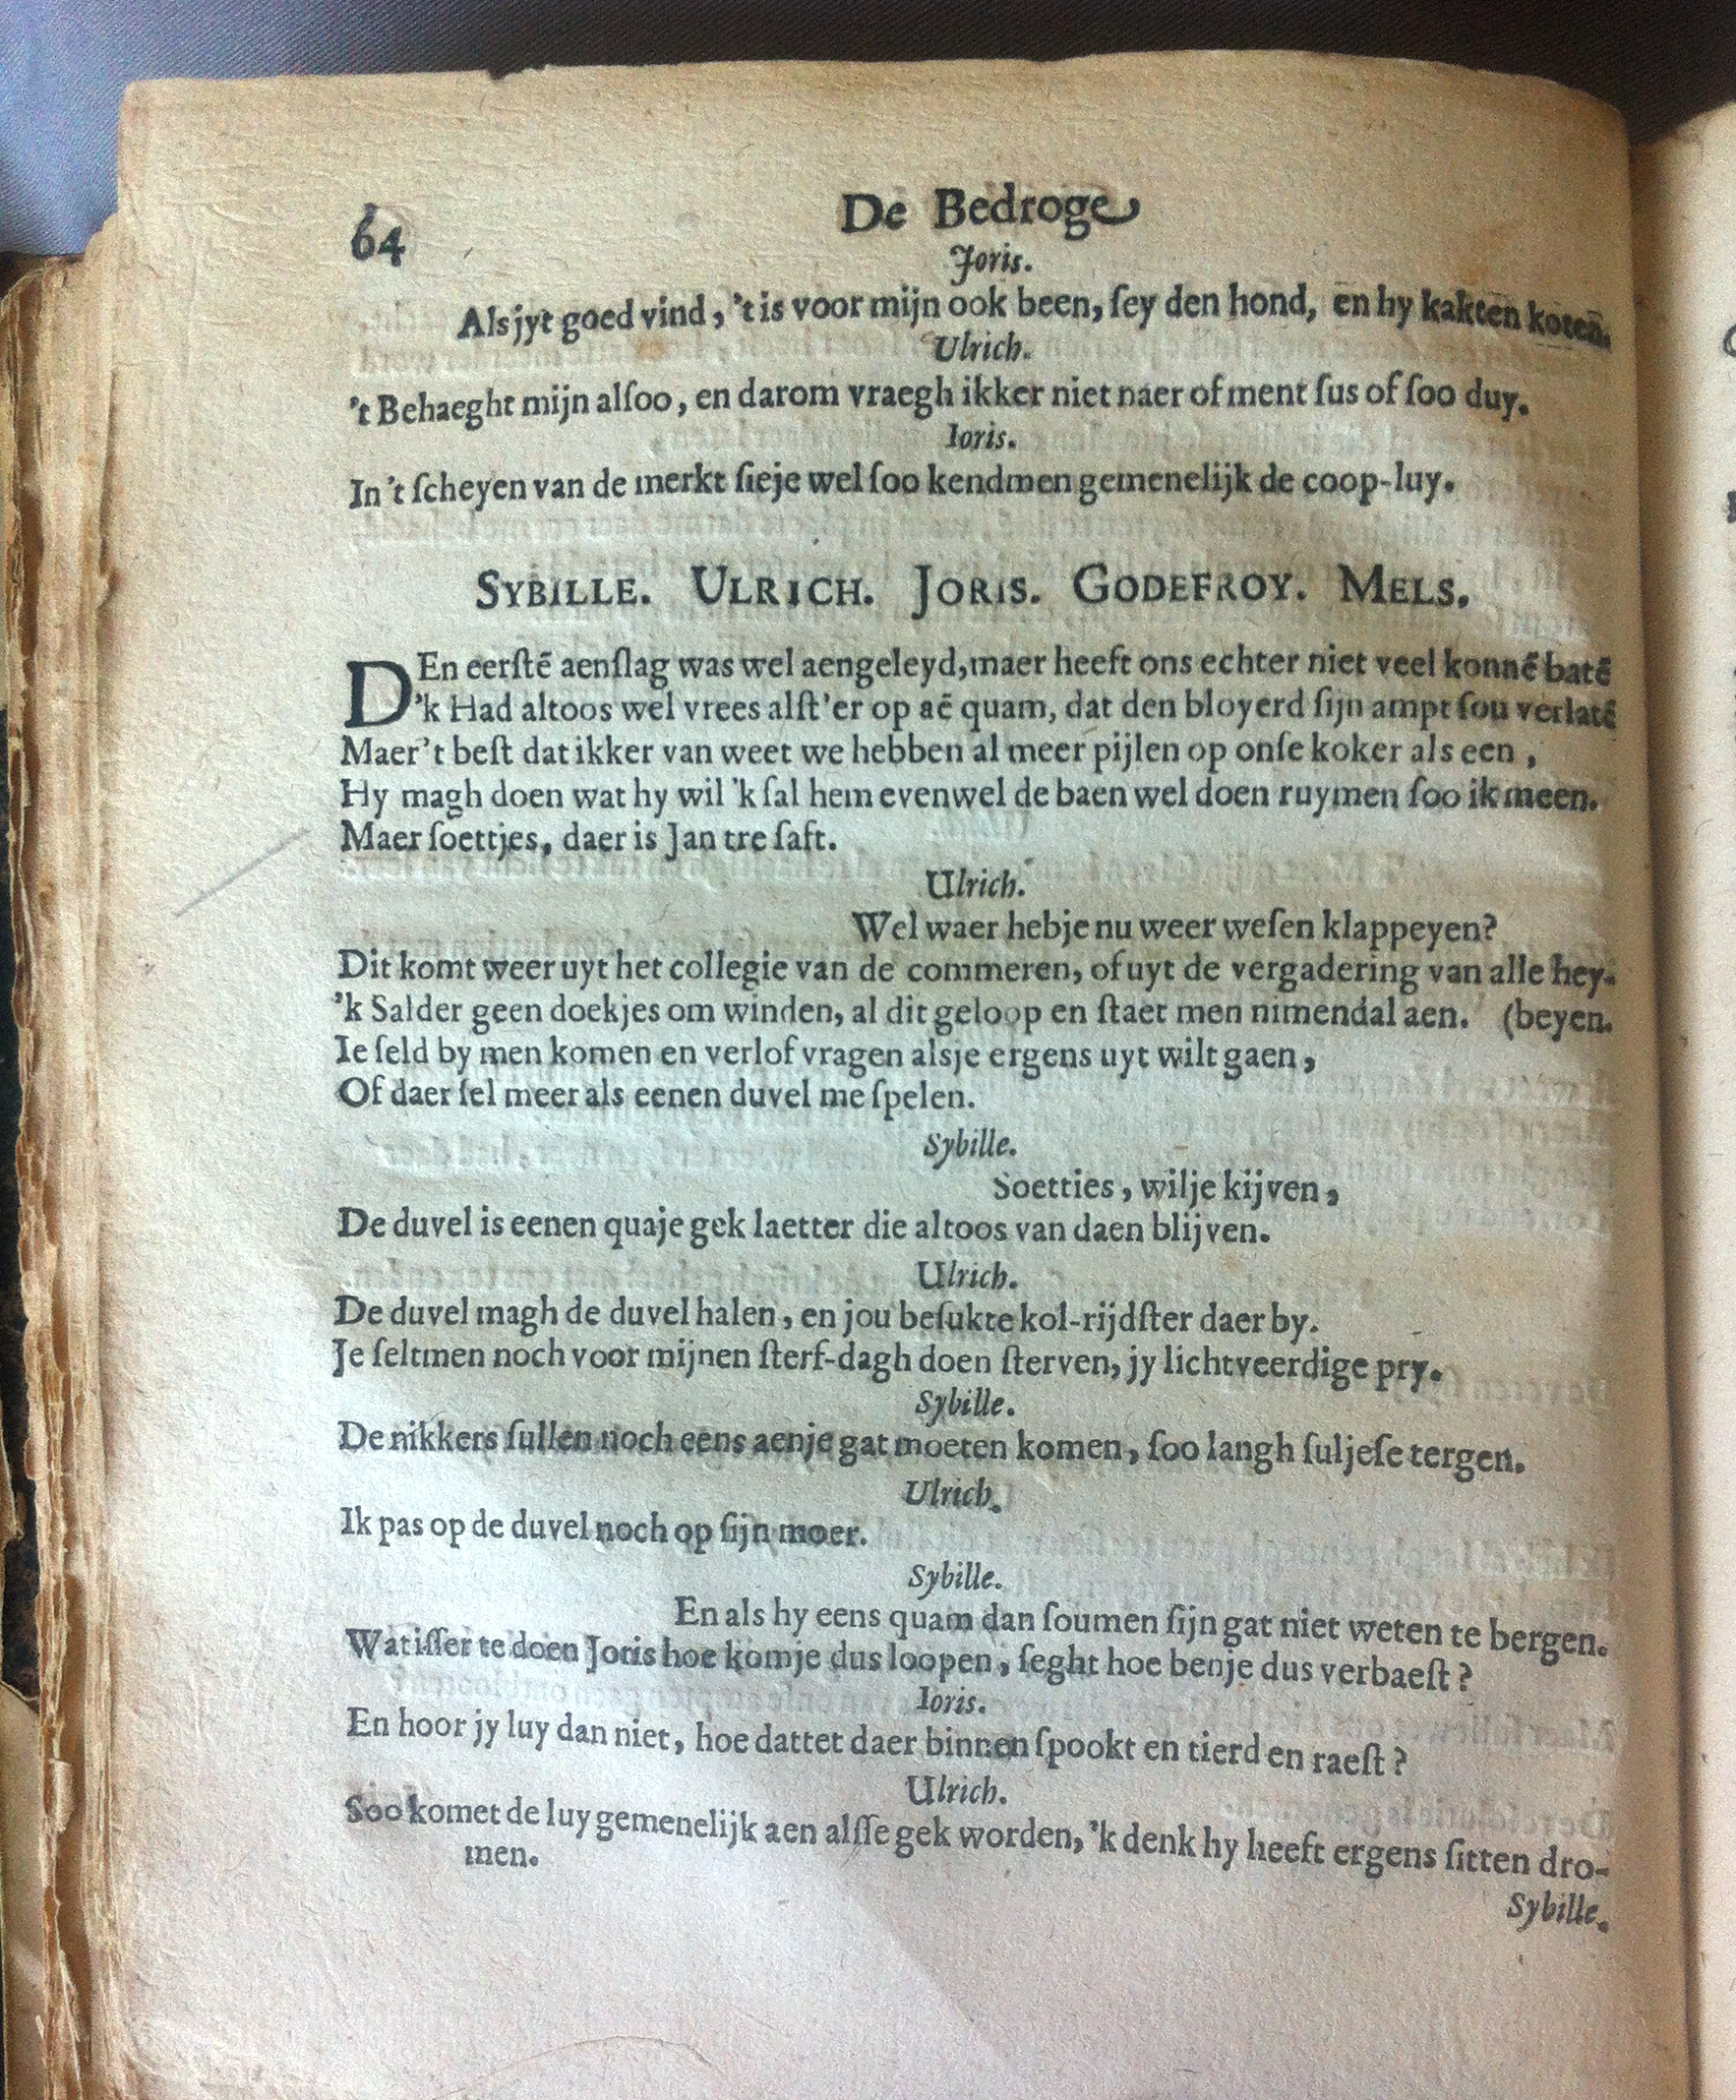 64
De Bedroge
Joris.
Als jyt goed vind, 't is voor mijn ook been, ſey den hond, en hy kakten koten.
Ulrich.
't Behaeght mijn alſoo, en darom vraegh ikker niet naer of ment ſus of ſoo duy.
Ioris.
In 't ſcheyen van de merkt ſieje wel ſoo kendmen gemenelijk de coop-luy.
SYBILLE. ULRICH. JORIS. GODEFROY. MELS.
DEn eerſtē aenſlag was wel aengeleyd, maer heeft ons echter niet veel konnē batē
'k Had altoos wel vrees alſt'er op aē quam, dat den bloyerd ſijn ampt ſou verlatē
Maer 't beſt dat ikker van weet we hebben al meer pijlen op onſe koker als een,
Hy magh doen wat hy wil 'k ſal hem evenwel de baen wel doen ruymen ſoo ik meen.
Maer ſoettjes, daer is Jan tre ſaft.
Ulrich.
Wel waer hebje nu weer weſen klappeyen?
Dit komt weer uyt het collegie van de commeren, of uyt de vergadering van alle hey-
'k Salder geen doekjes om winden, al dit geloop en ſtaet men nimendal aen. (beyen.
Ie ſeld by men komen en verlof vragen alsje ergens uyt wilt gaen,
Of daer ſel meer als eenen duvel me ſpelen.
Sybille.
Soetties, wilje kijven,
De duvel is eenen quaje gek laetter die altoos van daen blijven.
Ulrich.
De duvel magh de duvel halen, en jou beſukte kol-rijdſter daer by.
Je ſeltmen noch voor mijnen ſterf-dagh doen ſterven, jy lichtveerdige pry.
Sybille.
De nikkers ſullen noch eens aenje gat moeten komen, ſoo langh ſuljeſe tergen.
Ulrich.
Ik pas op de duvel noch op ſijn moer.
Sybille.
En als hy eens quam dan ſoumen ſijn gat niet weten te bergen.
Wat iſſer te doen Joris hoe komje dus loopen, ſeght hoe benje dus verbaeſt?
Ioris.
En hoor jy luy dan niet, hoe dattet daer binnen ſpookt en tierd en raeſt?
Ulrich.
Soo komet de luy gemenelijk aen alſſe gek worden, 'k denk hy heeft ergens ſitten dro-
men.
Sybille.